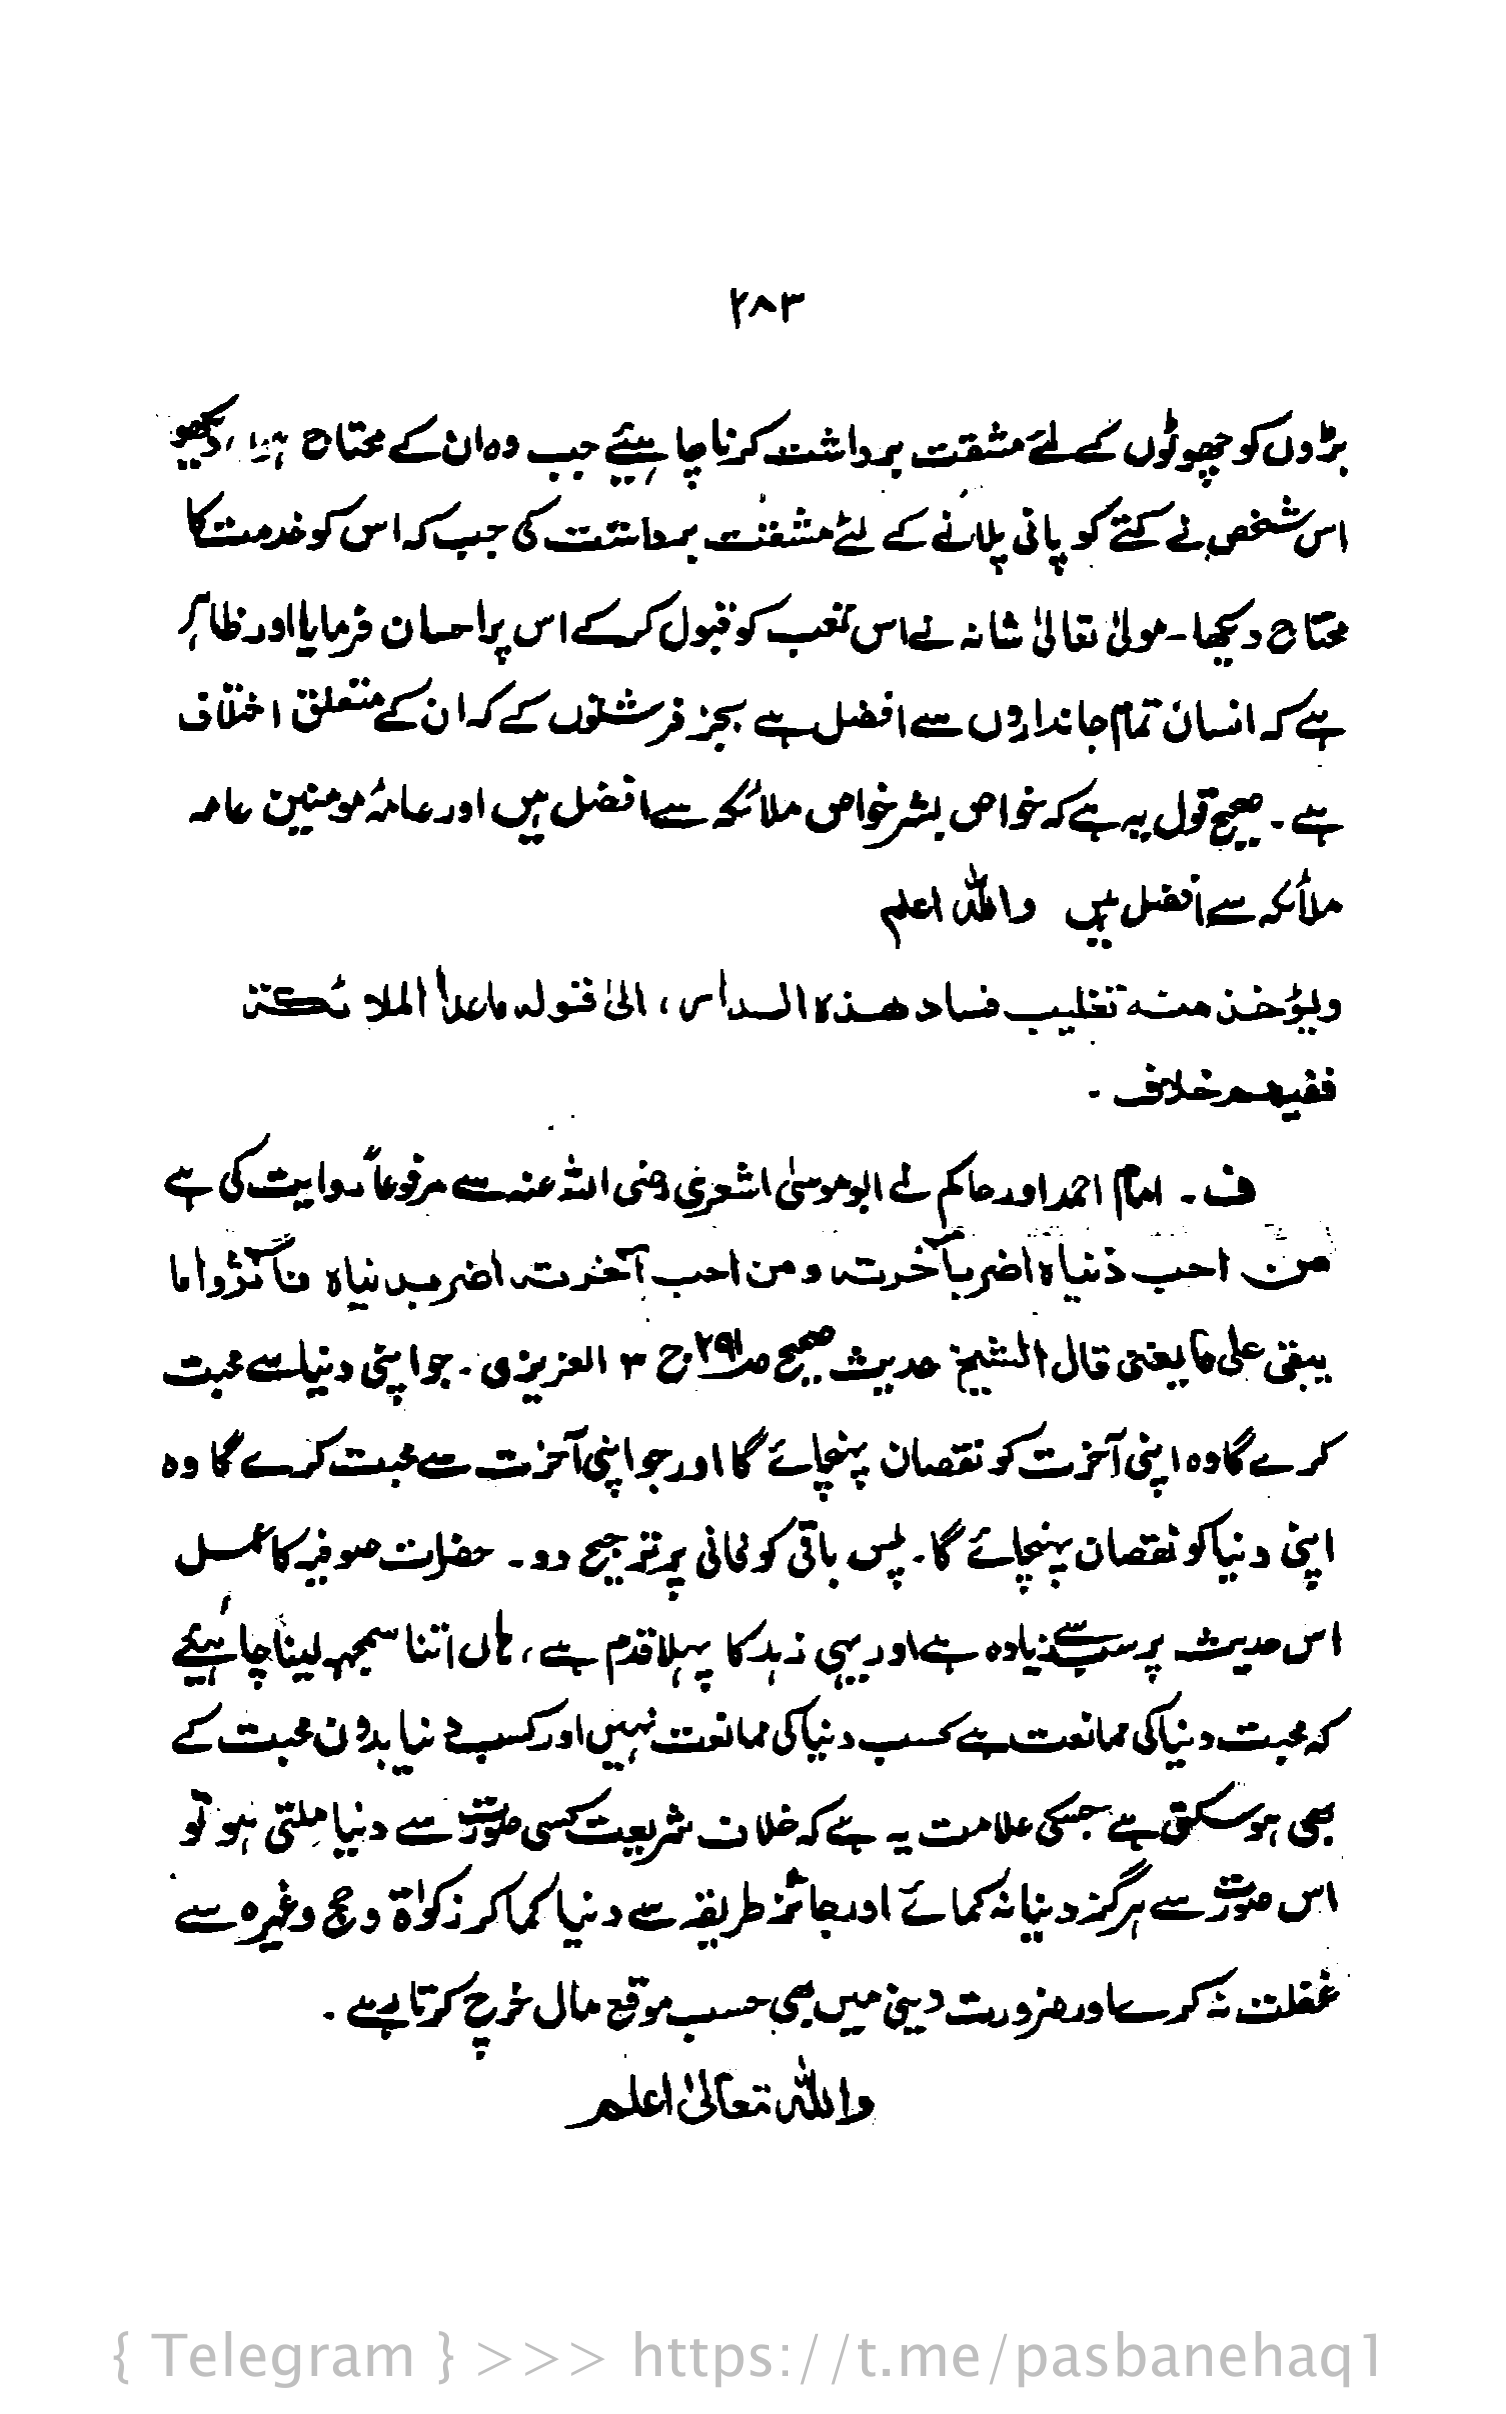 ۲۸۳
بڑوں کو چھوٹوں کے لئے مشقت برداشت کرنا چاہیئے جب وہ ان کے محتاج دیکھو
اس شخص نے کتے کو پانی پلانے کے لئے مشقت برداشت کی جب کہ اس کو خدمت کا
محتاج دیکھا ۔ مولیٰ تعالیٰ شانہ نے اس تعب کو قبول کر کے اس پر احسان فرمایا اور ظاہر
ہے کہ انسان تمام جانداروں سے افضل ہے بجز فرشتوں کے کہ ان کے متعلق اختلاف
ہے ۔ صحیح قول یہ ہے کہ خواص بشر خواص ملائکہ سے افضل ہیں اور عامۂ مومنین عامہ
ملائکہ سے افضل ہیں واللہ اعلم
ویؤخذ منہ تغلیب فساد ھذہ الدار ، الیٰ قولہ ماعدا الملائکۃ
ففیھم خلاف ۔
ف ۔ امام احمد اور حاکم نے ابوموسیٰ اشعری رضی اللہ عنہ سے مرفوعاً روایت کی ہے
من احب دنیاہ اضر بآخرتہ ومن احب آخرتہ اضر بدنیاہ فآثروا ما
یبقی علی ما یفنی قال الشیخ حدیث صحیح صـ۲۹۱ ج ۳ العزیزی ۔ جو اپنی دنیا سے محبت
کرے گا وہ اپنی آخرت کو نقصان پہنچائے گا اور جو اپنی آخرت سے محبت کرے گا وہ
اپنی دنیا کو نقصان پہنچائے گا ۔ پس باقی کو فانی پر ترجیح دو ۔ حضرات صوفیہ کا عمل
اس حدیث پر سب سے زیادہ ہے اور یہی زہد کا پہلا قدم ہے ، ہاں اتنا سمجھ لینا چاہیئے
کہ محبت دنیا کی ممانعت ہے کسب دنیا کی ممانعت نہیں اور کسب دنیا بدون محبت کے
بھی ہو سکتی ہے جسکی علامت یہ ہے کہ خلاف شریعت کسی صورت سے دنیا ملتی ہو تو
اس صورت سے ہرگز دنیا نہ کمائے اور جائز طریقہ سے دنیا کما کر زکوٰۃ و حج وغیرہ سے
غفلت نہ کرے اور ضرورت دینی میں بھی حسب موقع مال خرچ کرتا رہے ۔
واللہ تعالیٰ اعلم
{ Telegram } >>> https://t.me/pasbanehaq1